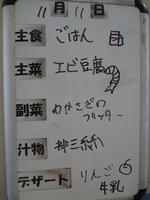 11月11日
主食 ごはん
主菜 エビ豆腐
副菜 わかさぎの
フリッター
汁物
デザート りんご
牛乳